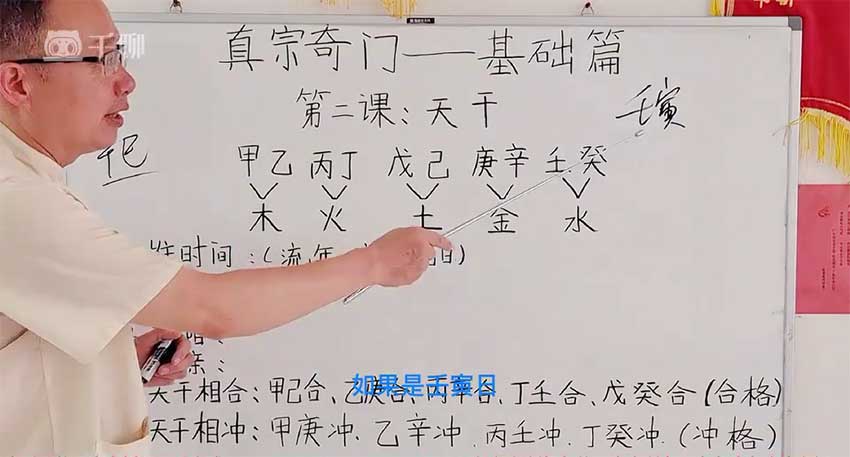 千聊
真宗奇门——基础篇
第二课：天干
壬寅
甲乙 丙丁 戊己 庚辛 壬癸
木 火 土 金 水
时间：(流年 日)
如果是壬寅日
天干相合：甲己合、乙庚合、丙辛合、丁壬合、戊癸合(合格)
天干相冲：甲庚冲、乙辛冲、丙壬冲、丁癸冲、(冲格)